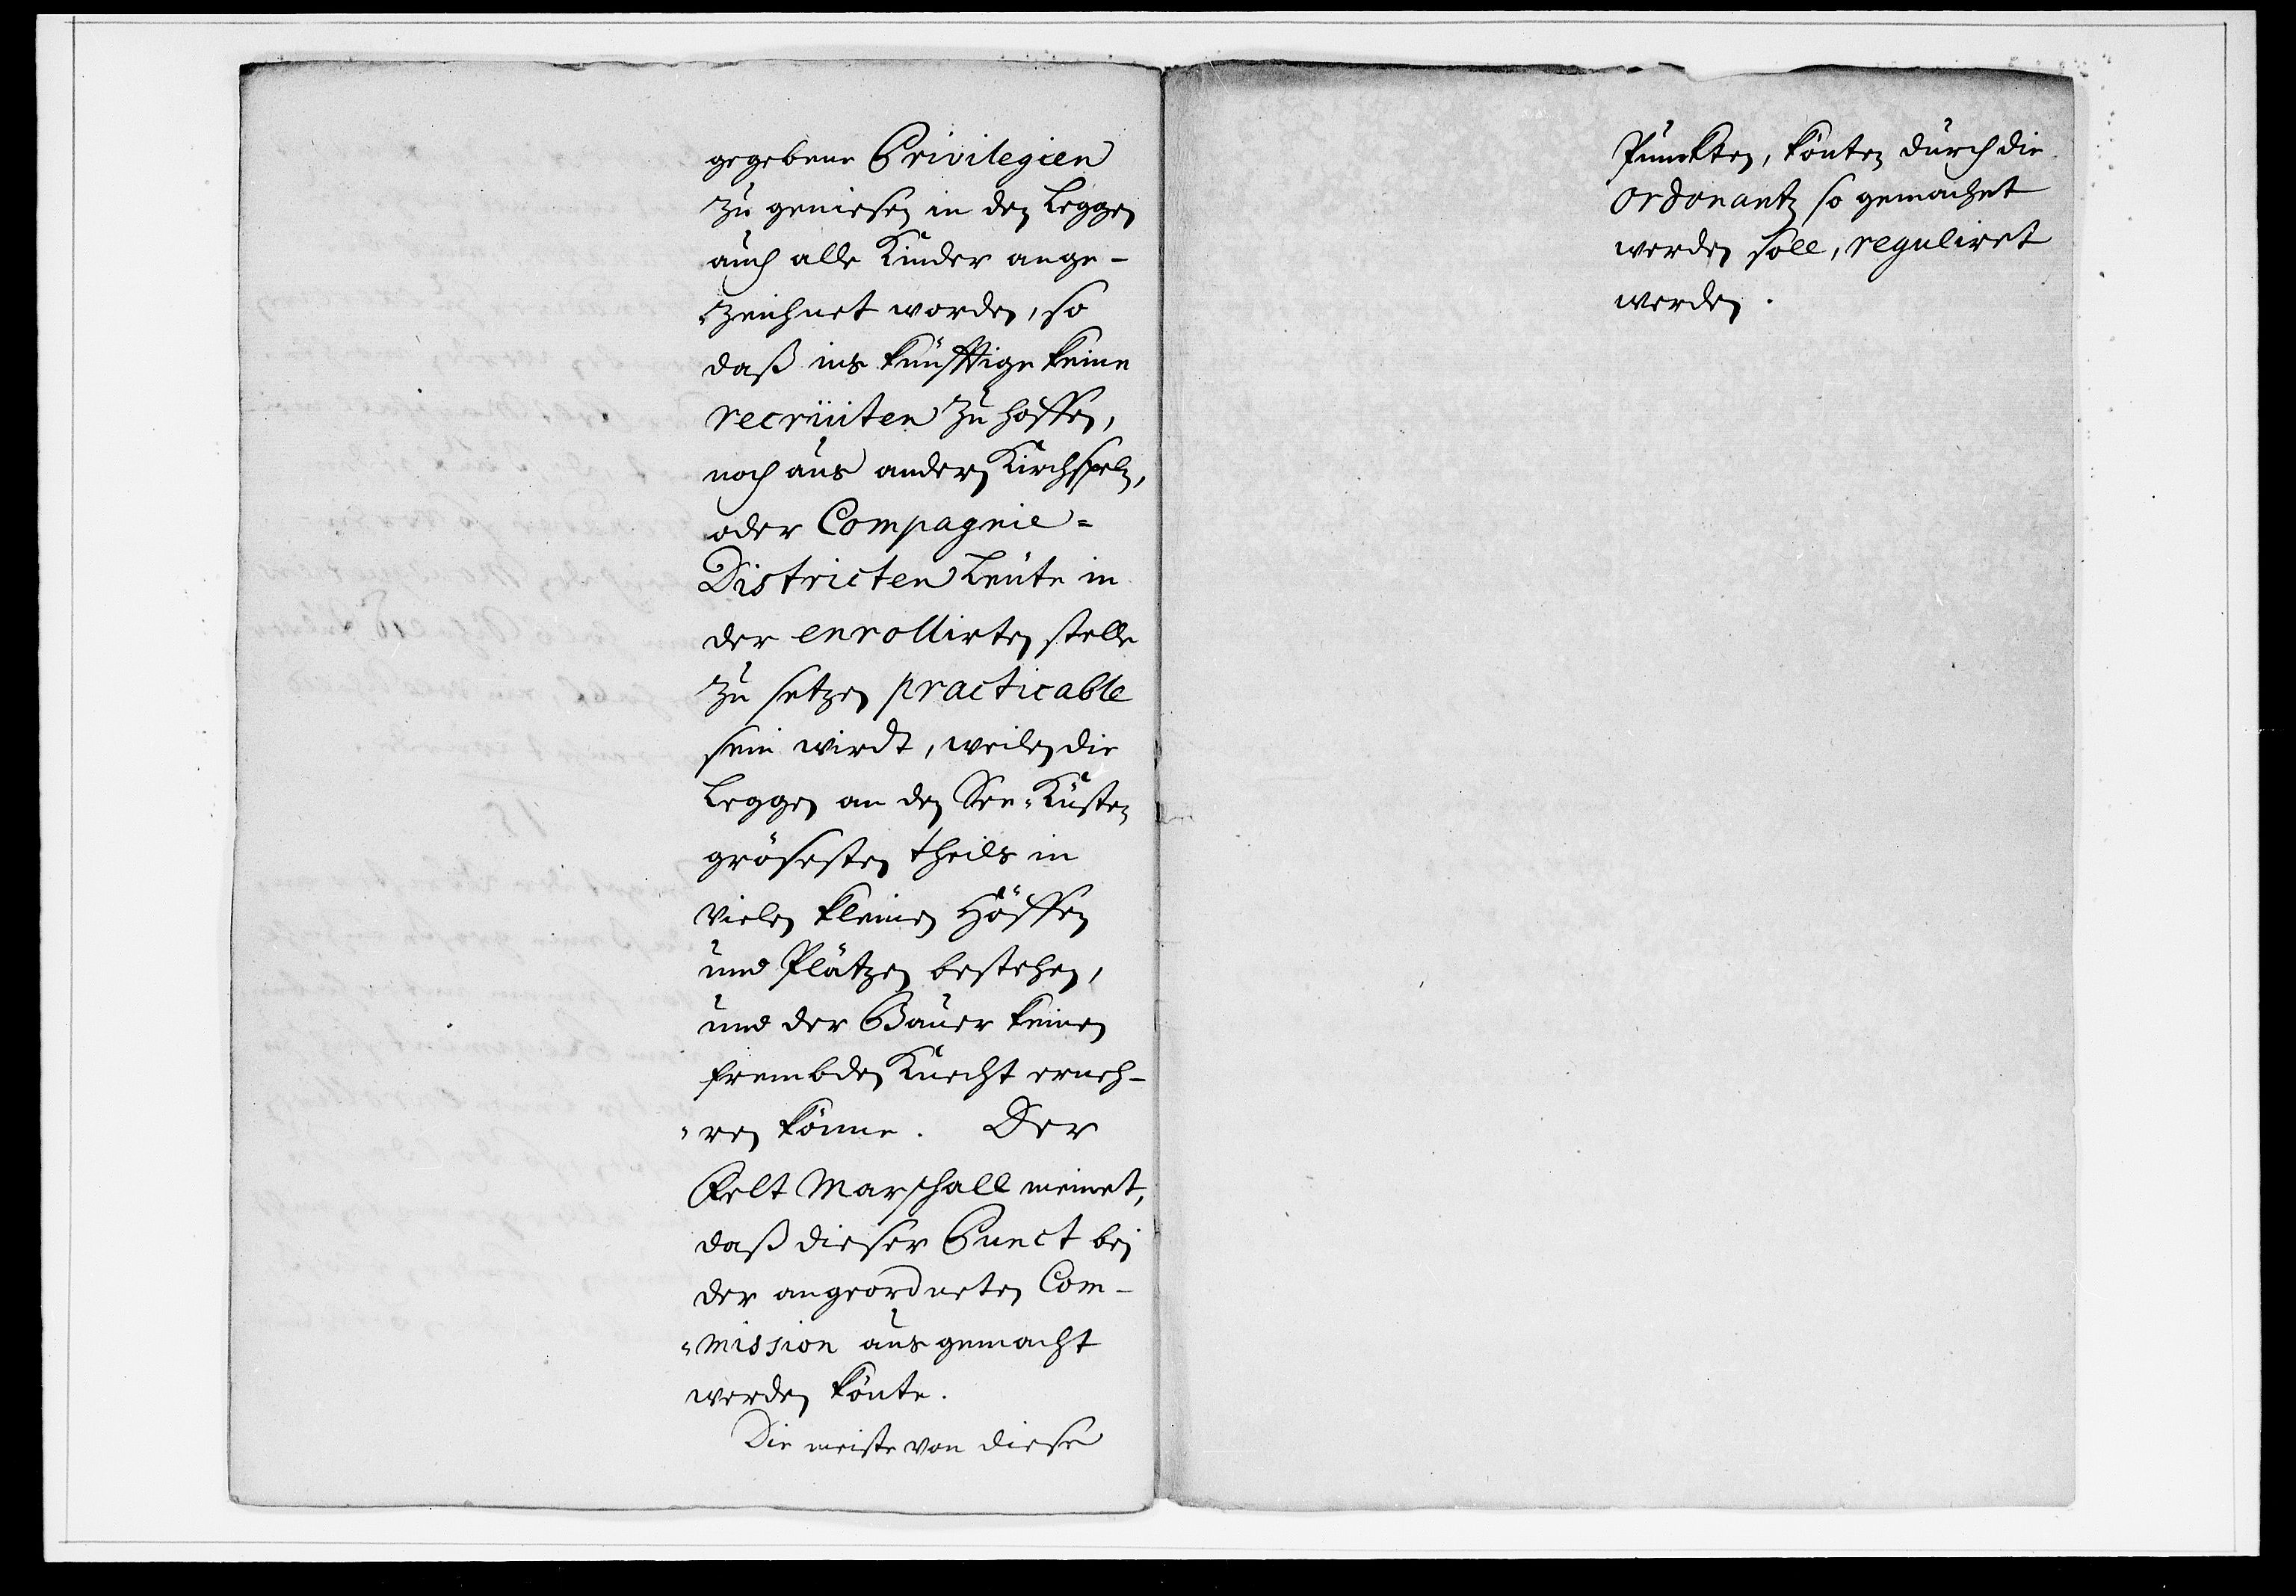 gegebene Privilegien
zu geniesen in den Leggen
auch alle Kinder ange-
zeichnet worden, so
daß ins künfftige keine
recruiten zu hoffen,
noch aus andern Kirchspeln,
oder Compagnie=
Districten Leute in
der enrollirten stelle
zu setzen practicable
sein wirdt, weilen die
Leggen an den See-Küsten
grösesten theils in
vielen kleinen Höffen
und Plätzen bestehen,
und der Bauer keinen
frembden Knecht erneh-
ren könne. Der
Felt Marschall meinet,
daß dieser Punct bei
der angeordneten Com-
mission ausgemacht
werden könte.
Die meiste von diese
Punkten, könten durch die
ordonantz so gemachet
werden soll, reguliret
werden.